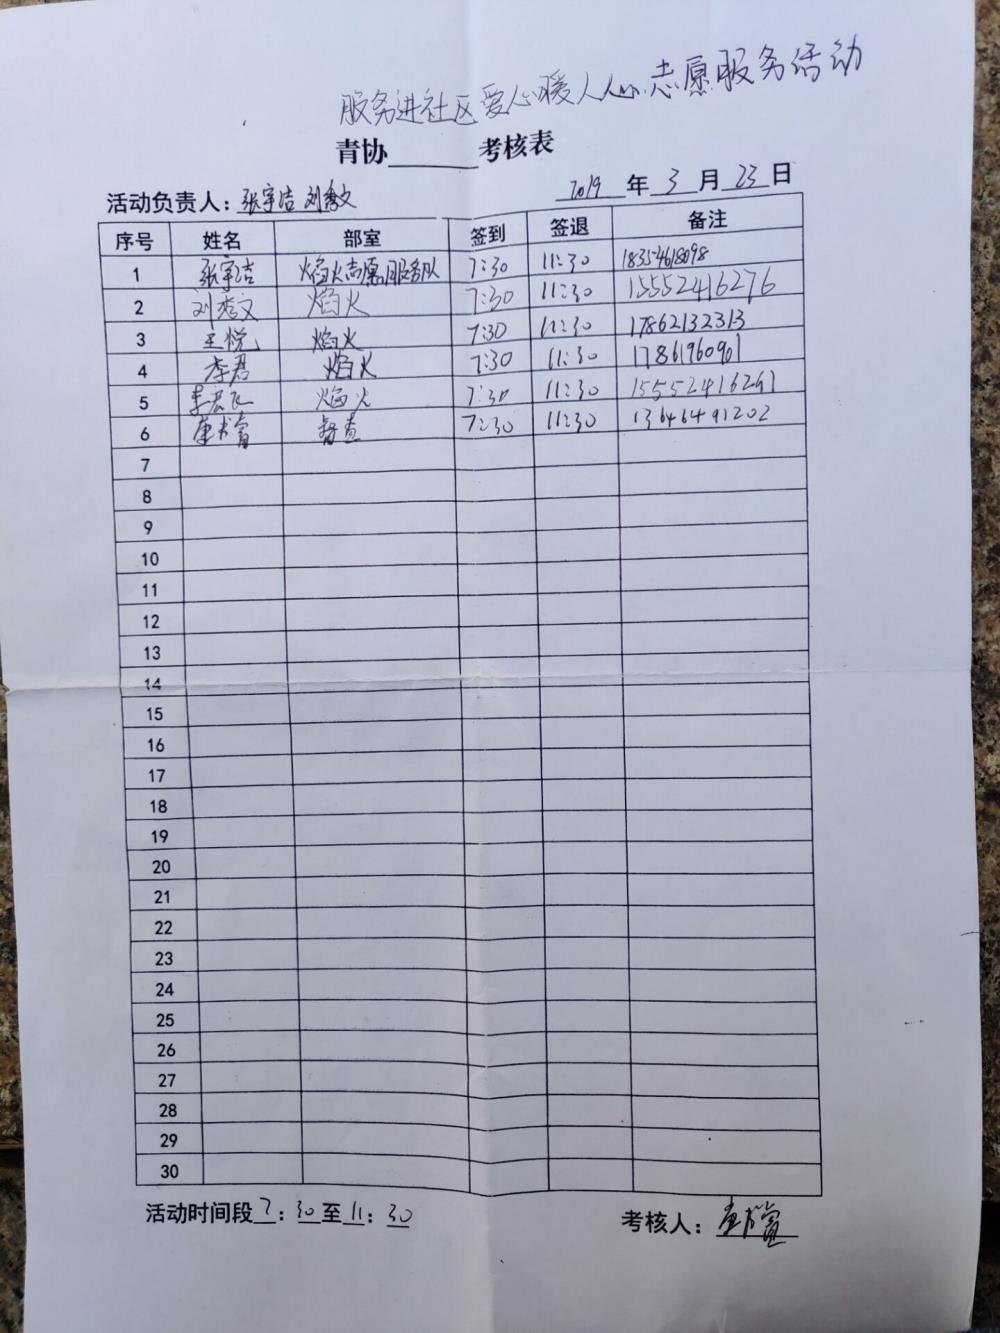 服务进社区爱心暖人人心志愿服务活动
青协______考核表
活动负责人：张宇洁 刘秀文 2019 年 3 月 23 日
序号 姓名 部室 签到 签退 备注
1 张宇洁 焰火志愿服务队 7:30 11:30 18354618098
2 刘秀文 焰火 7:30 11:30 15552416276
3 王悦 焰火 7:30 11:30 17862132313
4 李君 焰火 7:30 11:30 17861960901
5 焰火 7:30 11:30 15552416261
6 督查 7:30 11:30 13646491202
7
8
9
10
11
12
13
14
15
16
17
18
19
20
21
22
23
24
25
26
27
28
29
30
活动时间段 7：30 至 11：30 考核人：